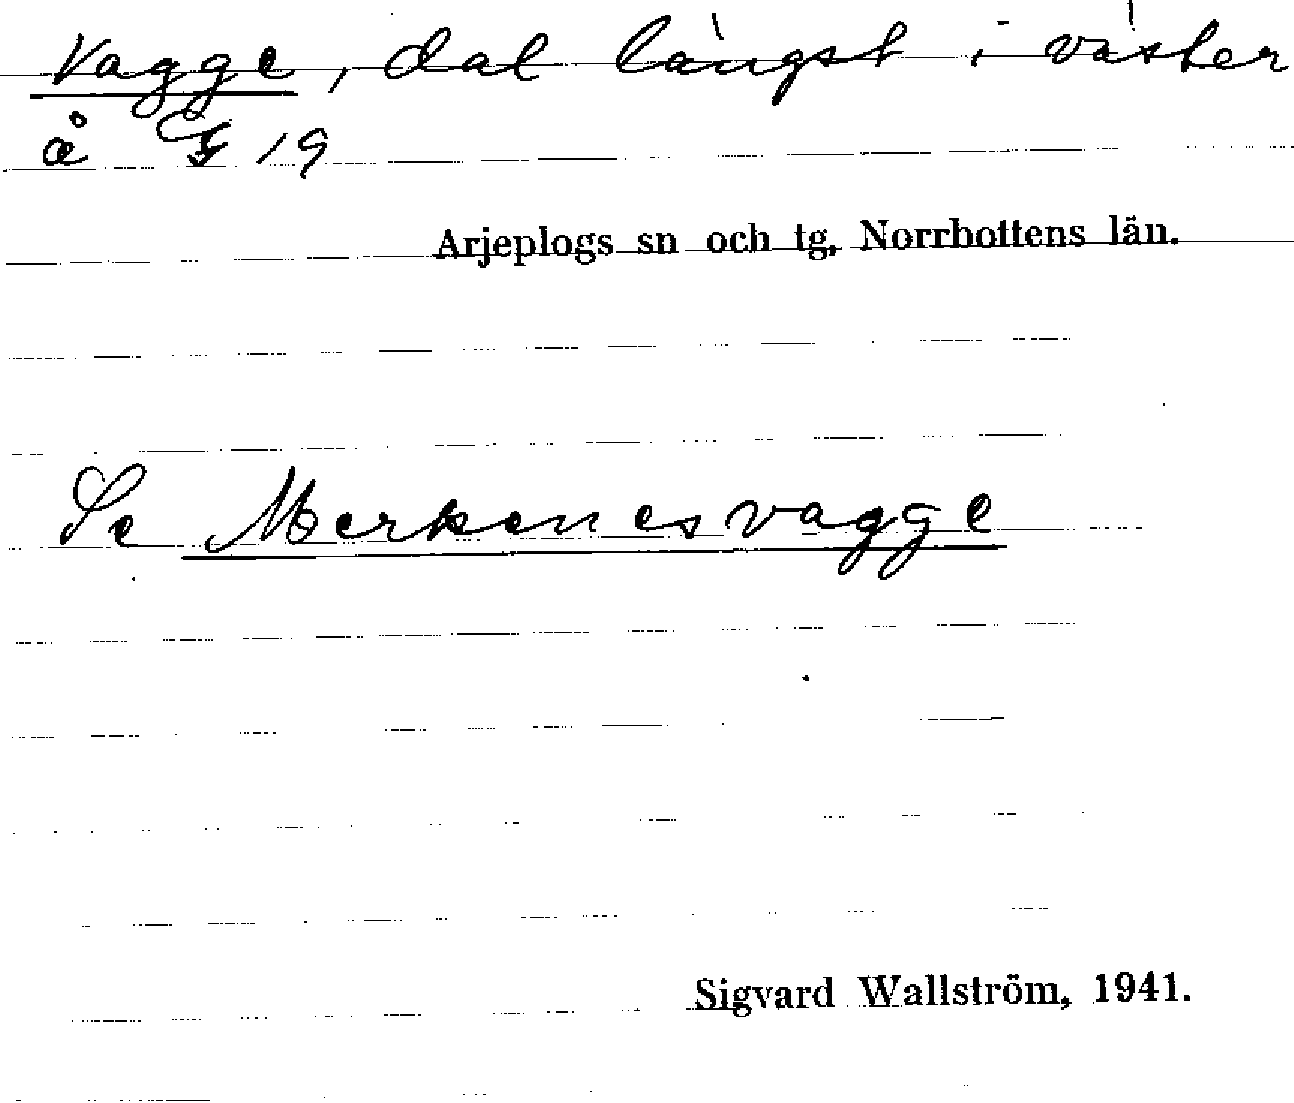 Vagge, dal längst i väster
å F 19
Arjeplogs sn och tg, Norrbottens län.
Se Merkenesvagge
Sigvard Wallström, 1941.